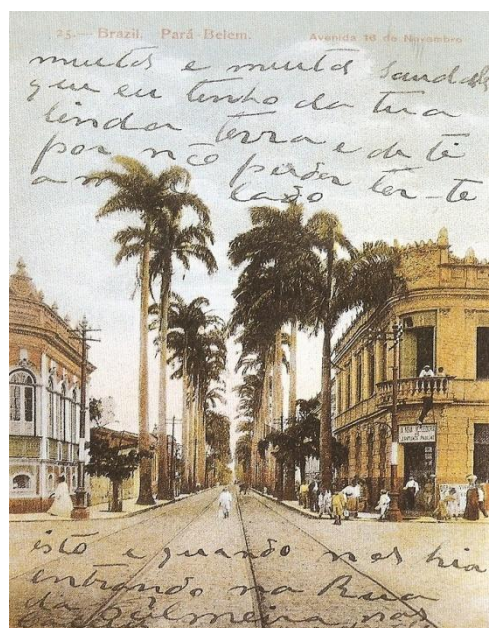 25.— Brazil. Pará-Belem. Avenida 16 de Novembro
muitas e muitas saudades
que eu tenho da tua
linda terra e de ti
por não poder ter-te
lado
isto e quando nos hia
entrando na Rua
da Palmeira, nas